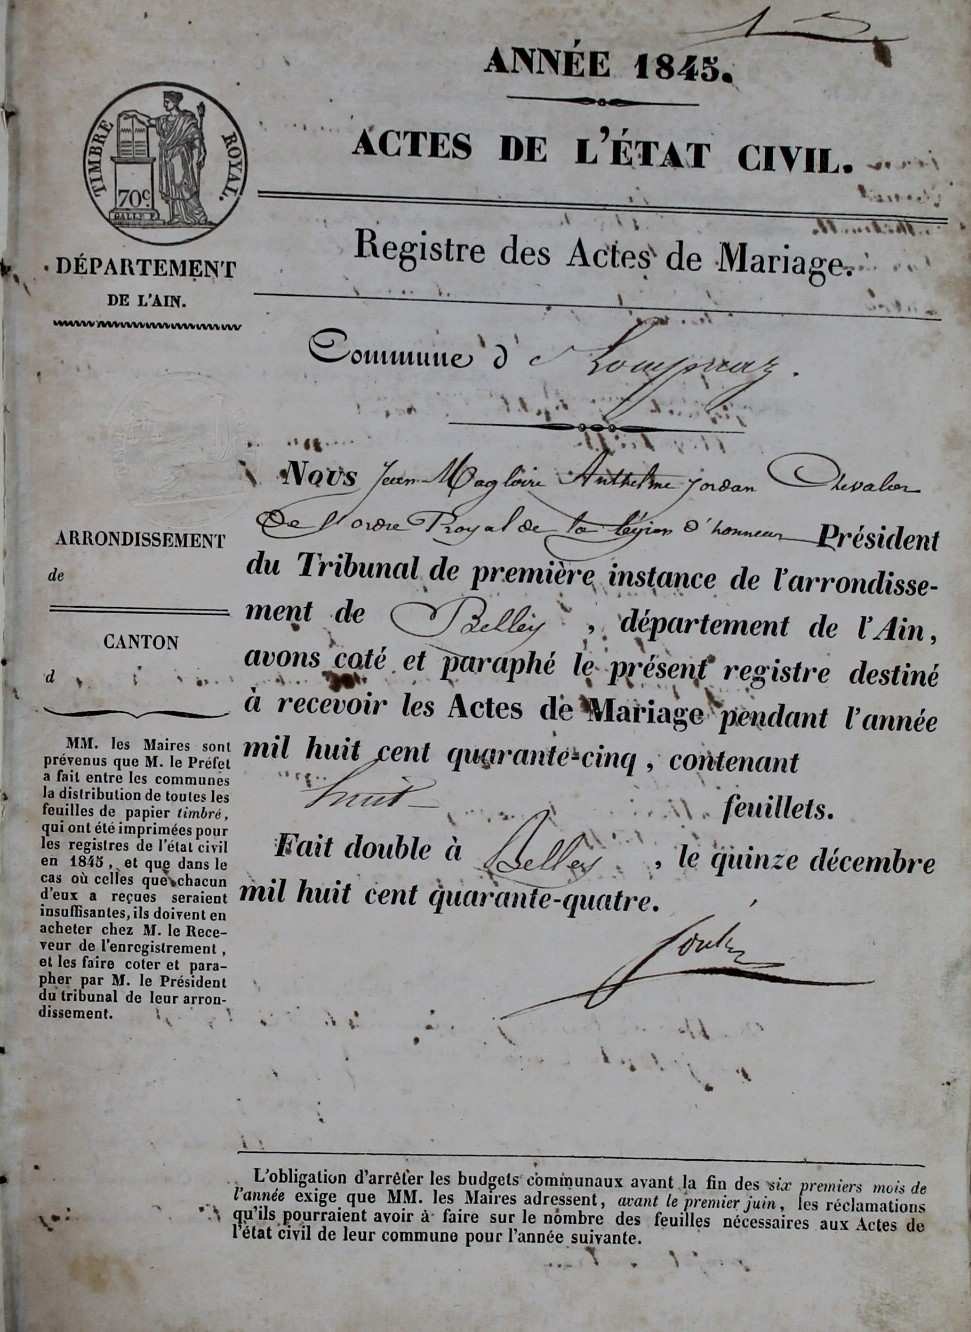 ANNÉE 1845.
ACTES DE L'ÉTAT CIVIL.
TIMBRE ROYAL.
70c
DÉPARTEMENT
DE L'AIN.
Registre des Actes de Mariage.
Commune d'
ARRONDISSEMENT
de
CANTON
d
MM. les Maires sont
prévenus que M. le Préfet
a fait entre les communes
la distribution de toutes les
feuilles de papier timbré,
qui ont été imprimées pour
les registres de l'état civil
en 1845, et que dans le
cas où celles que chacun
d'eux a reçues seraient
insuffisantes, ils doivent en
acheter chez M. le Rece-
veur de l'enregistrement,
et les faire coter et para-
pher par M. le Président
du tribunal de leur arron-
dissement.
Nous Jean Magloire Anthelme Jordan Chevalier
De l'ordre Royal de la légion d'honneur Président
du Tribunal de première instance de l'arrondisse-
ment de Belley, département de l'Ain,
avons coté et paraphé le présent registre destiné
à recevoir les Actes de Mariage pendant l'année
mil huit cent quarante-cinq, contenant
huit feuillets.
Fait double à Belley, le quinze décembre
mil huit cent quarante-quatre.
L'obligation d'arrêter les budgets communaux avant la fin des six premiers mois de
l'année exige que MM. les Maires adressent, avant le premier juin, les réclamations
qu'ils pourraient avoir à faire sur le nombre des feuilles nécessaires aux Actes de
l'état civil de leur commune pour l'année suivante.